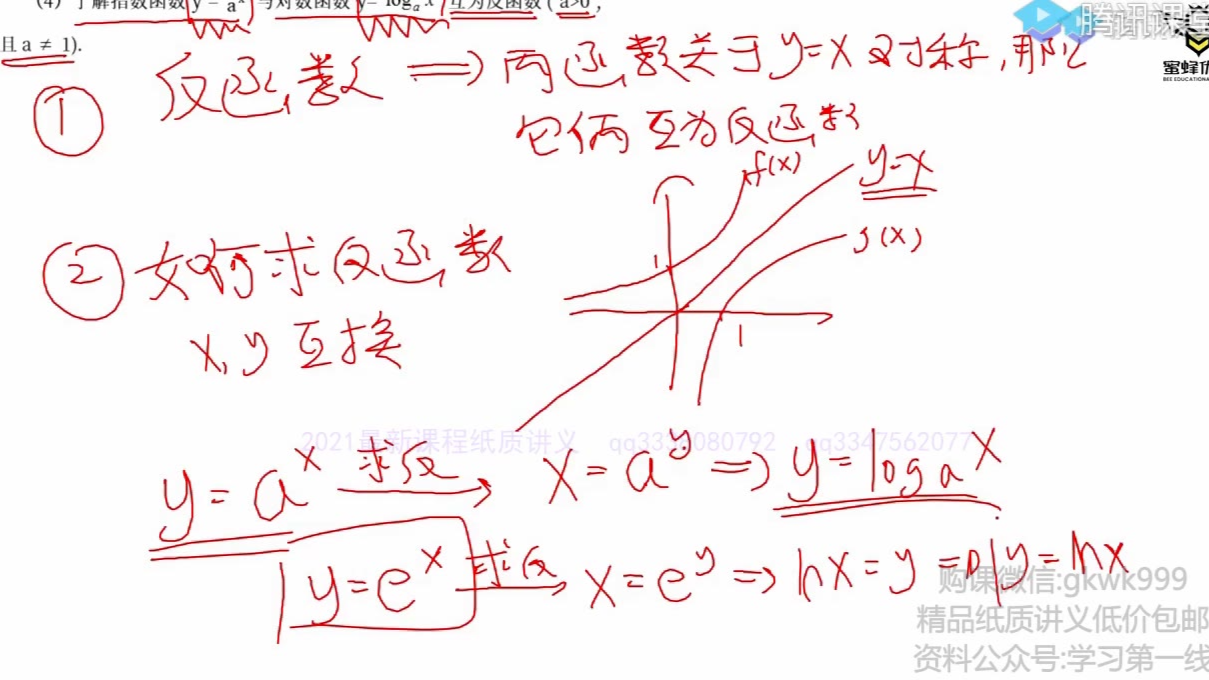 (4) 了解指数函数 y = aˣ 与对数函数 y= logₐ x 互为反函数 ( a>0 ,
且 a ≠ 1).
腾讯课堂
蜜蜂优
BEE EDUCATIONA
① 反函数 ⟹ 两函数关于 y=x 对称,那么
它俩 互为反函数
f(x)
y=x
g(x)
1
1
② 如何求反函数
x, y 互换
2021最新课程纸质讲义 qq3333080792 qq3347562077
y = aˣ 求反→ x = aʸ ⟹ y = logₐ x
y = eˣ 求反→ x = eʸ ⟹ lnx = y 即 y = lnx
购课微信:gkwk999
精品纸质讲义低价包邮
资料公众号:学习第一线